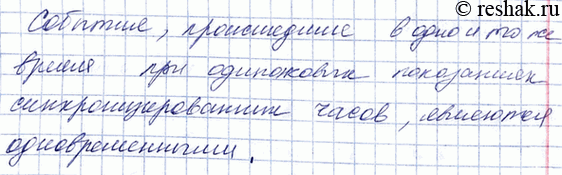 © reshak.ru
События, происшедшие в одно и то же
время при одинаковых показаниях
синхронизированных часов, являются
одновременными.